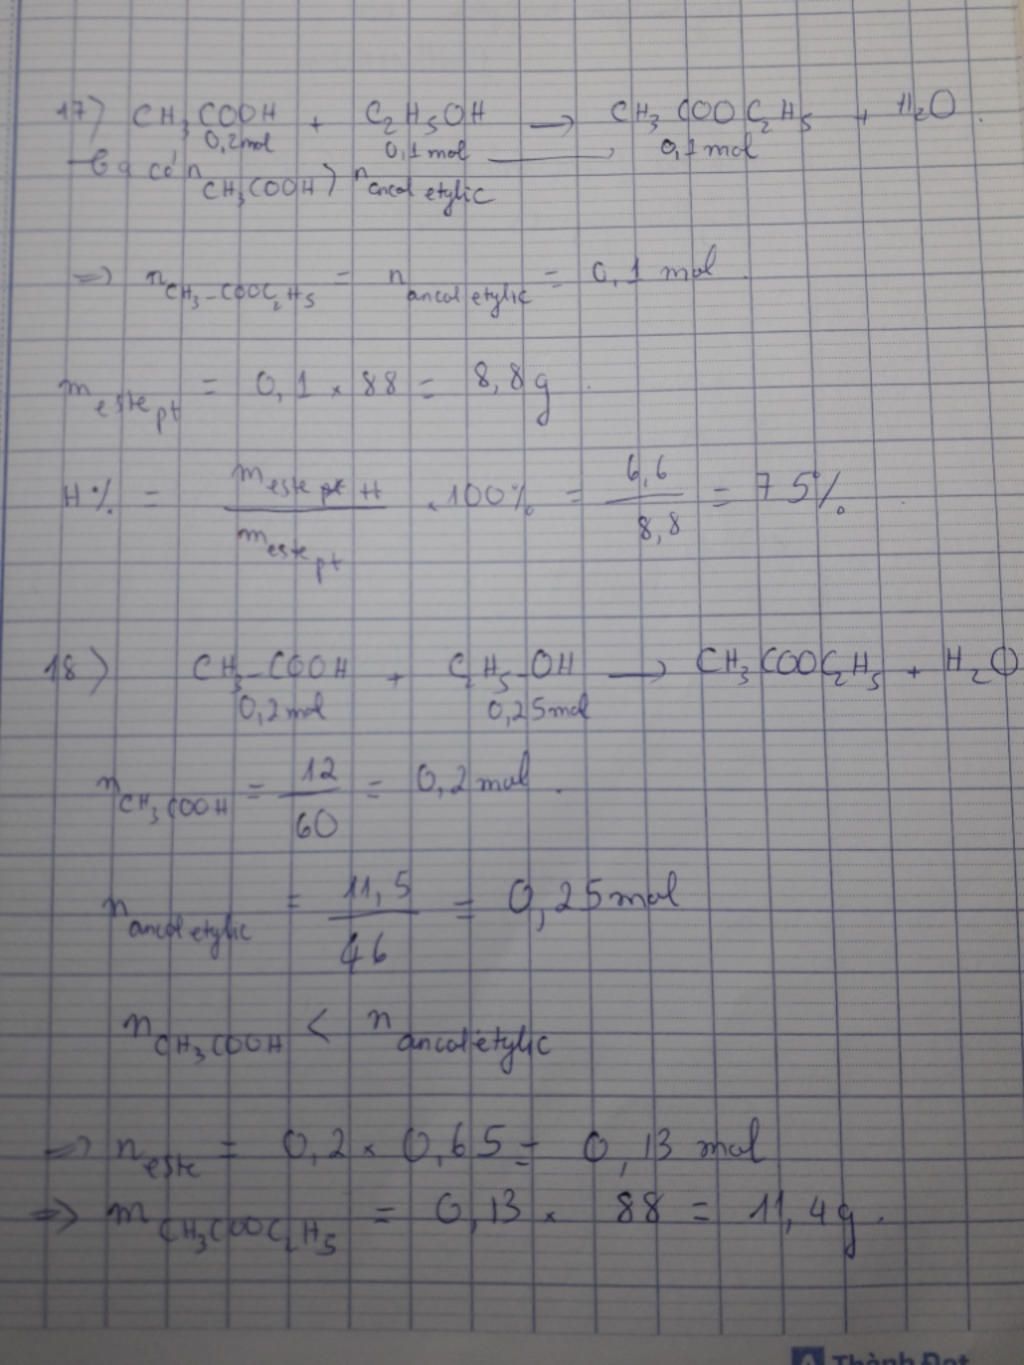 17) CH₃COOH + C₂H₅OH → CH₃COOC₂H₅ + H₂O.
0,2mol 0,1mol 0,1mol
có n CH₃COOH > n ancol etylic
=> n CH₃-COOC₂H₅ = n ancol etylic = 0,1 mol.
m este pt = 0,1 × 88 = 8,8g.
H% = m este tt / m este pt . 100% = 6,6 / 8,8 = 75%.
18) CH₃-COOH + C₂H₅-OH → CH₃COOC₂H₅ + H₂O
0,2mol 0,25mol
n CH₃COOH = 12 / 60 = 0,2 mol.
n ancol etylic = 11,5 / 46 = 0,25mol
n CH₃COOH < n ancol etylic
=> n este = 0,2 × 0,65 = 0,13 mol
=> m CH₃COOC₂H₅ = 0,13 × 88 = 11,4g.
Thành Đạt